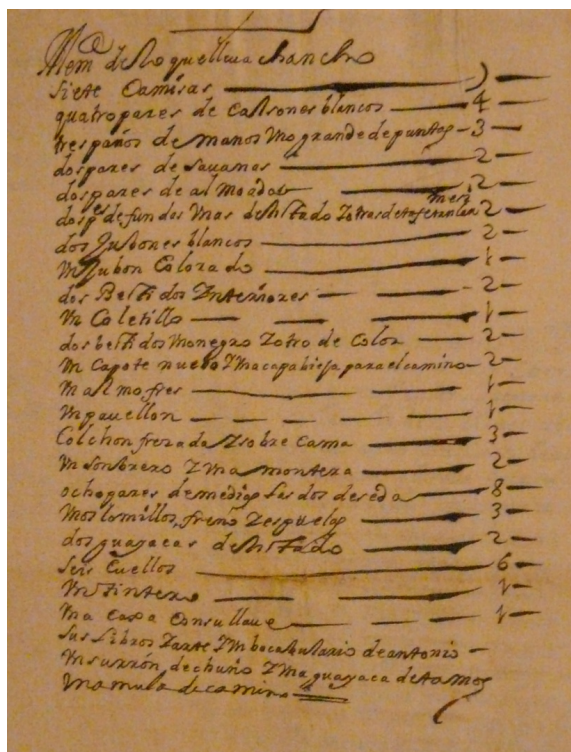 Mem.ª de lo que lleua chancho
siete Camisas — 7 —
quatro pares de Calsones blancos — 4 —
tres paños de manos Vno grande de puntas — 3 —
dos pares de sauanas — 2 —
dos pares de almoadas — 2 —
dos p.es de fundas Vnas de hilado Y otras de tafetan 2 —
dos Jubones blancos — 2 —
Vn Jubon Colorado — 1 —
dos Bestidos Ynteriores — 2 —
Vn Coletillo — 1 —
dos bestidos Vno negro Y otro de Color — 2 —
Vn Capote nuebo Y Vna capa bieja para el camino — 2 —
Vn almofres — 1 —
Vn pauellon — 1 —
Colchon frezada Y sobre Cama — 3 —
Vn sonbrero Y Vna montera — 2 —
ocho pares de medias las dos de seda — 8 —
Vnos lomillos, freno Y espuelas — 3 —
dos guayacas de hilado — 2 —
seis Cuellos — 6 —
Vn tintero — 1 —
Vna Caxa Con su llaue — 1 —
sus libros Y arte Y Vn bocabulario de antonio —
Vn surrón, de chuño Y Vna guayaca de tamos
Vna mula de camino